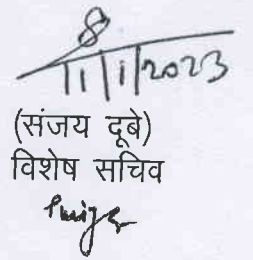 11/1/2023
(संजय दूबे)
विशेष सचिव